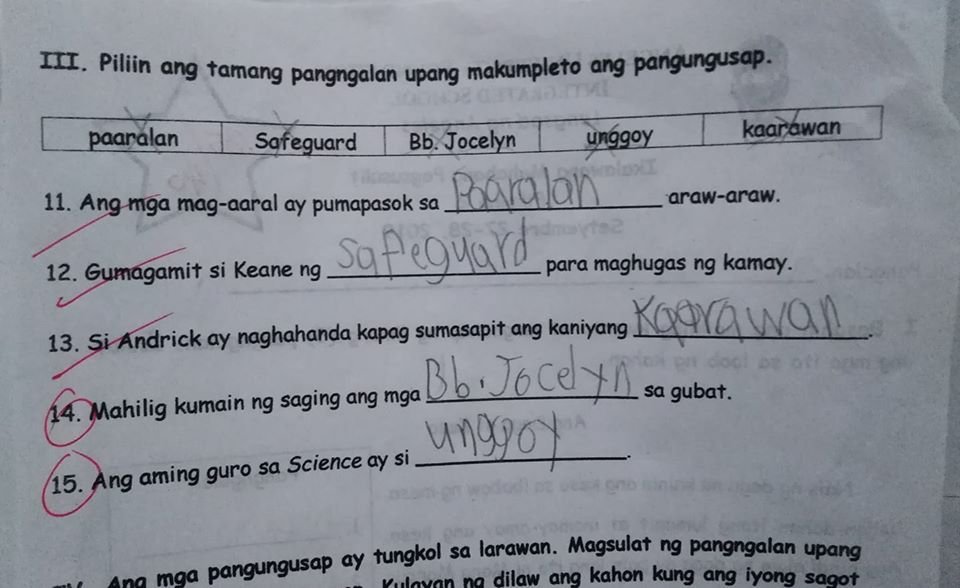 III. Piliin ang tamang pangngalan upang makumpleto ang pangungusap.
paaralan Safeguard Bb. Jocelyn unggoy kaarawan
11. Ang mga mag-aaral ay pumapasok sa Paaralan araw-araw.
12. Gumagamit si Keane ng safeguard para maghugas ng kamay.
13. Si Andrick ay naghahanda kapag sumasapit ang kaniyang Kaarawan.
14. Mahilig kumain ng saging ang mga Bb. Jocelyn sa gubat.
15. Ang aming guro sa Science ay si unggoy.
Ang mga pangungusap ay tungkol sa larawan. Magsulat ng pangngalan upang
Kulayan ng dilaw ang kahon kung ang iyong sagot